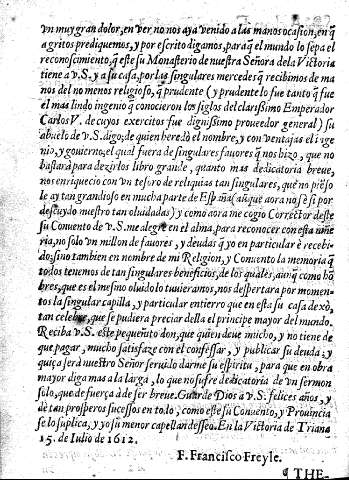 vn muy gran dolor, en ver, no nos aya venido a las manos ocasion, en q̃
a gritos prediquemos, y por escrito digamos, para q̃ el mundo lo sepa el
reconoscimiento, q̃ este su Monasterio de nuestra Señora de la Victoria
tiene a v.S. y a su casa, por las singulares mercedes q̃ recibimos de ma
nos del no menos religioso, q̃ prudente (y prudente lo fue tanto q̃ fue
el mas lindo ingenio q̃ conocieron los siglos del clarissimo Emperador
Carlos V. de cuyos exercitos fue dignissimo proueedor general) su
abuelo de v.S. digo; de quien heredò el nombre, y con ventajas el inge
nio, y gouierno; el qual fuera de singulares fauores q̃ nos hizo, que no
bastarà para dezirlos libro grande, quanto mas dedicatoria breue,
nos enriquecio con vn tesoro de reliquias tan singulares, que no piẽso
le ay tan grandioso en mucha parte de España (aũque aora no sè si por
descuydo nuestro tan oluidadas) y como aora me cogio Corrector deste
su Conuento de v.S. me alegre en el alma, para reconocer en esta niñe
ria, no solo vn millon de fauores, y deudas q̃ yo en particular è recebi-
do; sino tambien en nombre de mi Religion, y Conuento la memoria q̃
todos tenemos de tan singulares beneficios, de los quales, aunq̃ como hõ
bres, que es el mesmo oluido lo tuuieramos, nos despertara por momen-
tos la singular capilla, y particular entierro que en esta su casa dexò,
tan celebre, que se pudiera preciar della el principe mayor del mundo.
Reciba v.S. este pequeñito don, que quien deue mucho, y no tiene de
que pagar, mucho satisfaze con el confessar, y publicar su deuda; y
quiça serà nuestro Señor seruido darme su espiritu, para que en obra
mayor diga mas a la larga, lo que no sufre dedicatoria de vn sermon
solo, que de fuerça à de ser breue. Guarde Dios a v.S. felices años, y
dè tan prosperos sucessos en todo, como este su Conuento, y Prouincia
se lo suplica, y yo su menor capellan desseo. En la Victoria de Triana
15. de Iulio de 1612.
F. Francisco Freyle.
¶ THE-